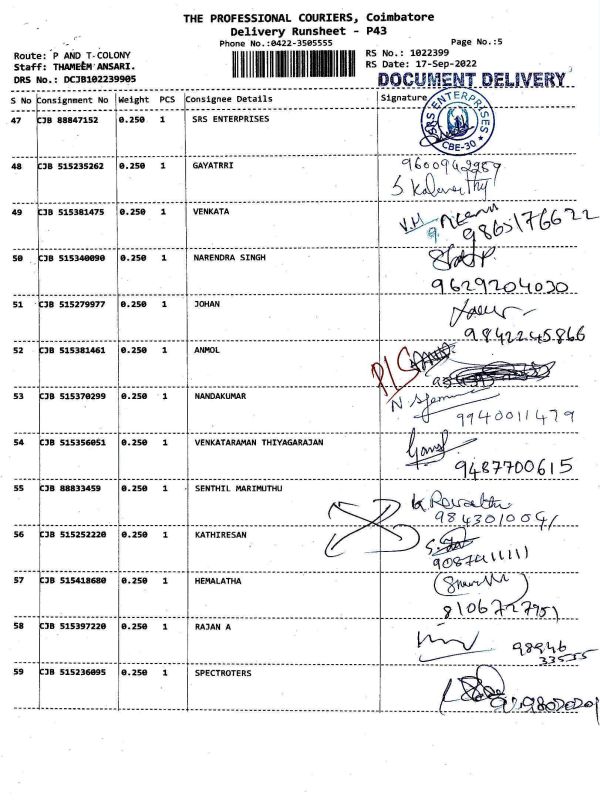 THE PROFESSIONAL COURIERS, Coimbatore
Delivery Runsheet - P43
Phone No.:0422-3505555
Page No.:5
Route: P AND T COLONY
RS No.: 1022399
Staff: THAMEEM ANSARI.
RS Date: 17-Sep-2022
DRS No.: DCJB102239905
DOCUMENT DELIVERY
S No Consignment No Weight PCS Consignee Details Signature
47 CJB 88847152 0.250 1 SRS ENTERPRISES
SRS ENTERPRISES
CBE-30
48 CJB 515235262 0.250 1 GAYATRRI
49 CJB 515381475 0.250 1 VENKATA
9865176622
50 CJB 515340090 0.250 1 NARENDRA SINGH
9629204030
51 CJB 515279977 0.250 1 JOHAN
9842245866
52 CJB 515381461 0.250 1 ANMOL
53 CJB 515370299 0.250 1 NANDAKUMAR
9940011479
54 CJB 515356051 0.250 1 VENKATARAMAN THIYAGARAJAN
9487700615
55 CJB 88833459 0.250 1 SENTHIL MARIMUTHU
56 CJB 515252220 0.250 1 KATHIRESAN
57 CJB 515418680 0.250 1 HEMALATHA
8106727951
58 CJB 515397220 0.250 1 RAJAN A
98946
33555
59 CJB 515236095 0.250 1 SPECTROTERS